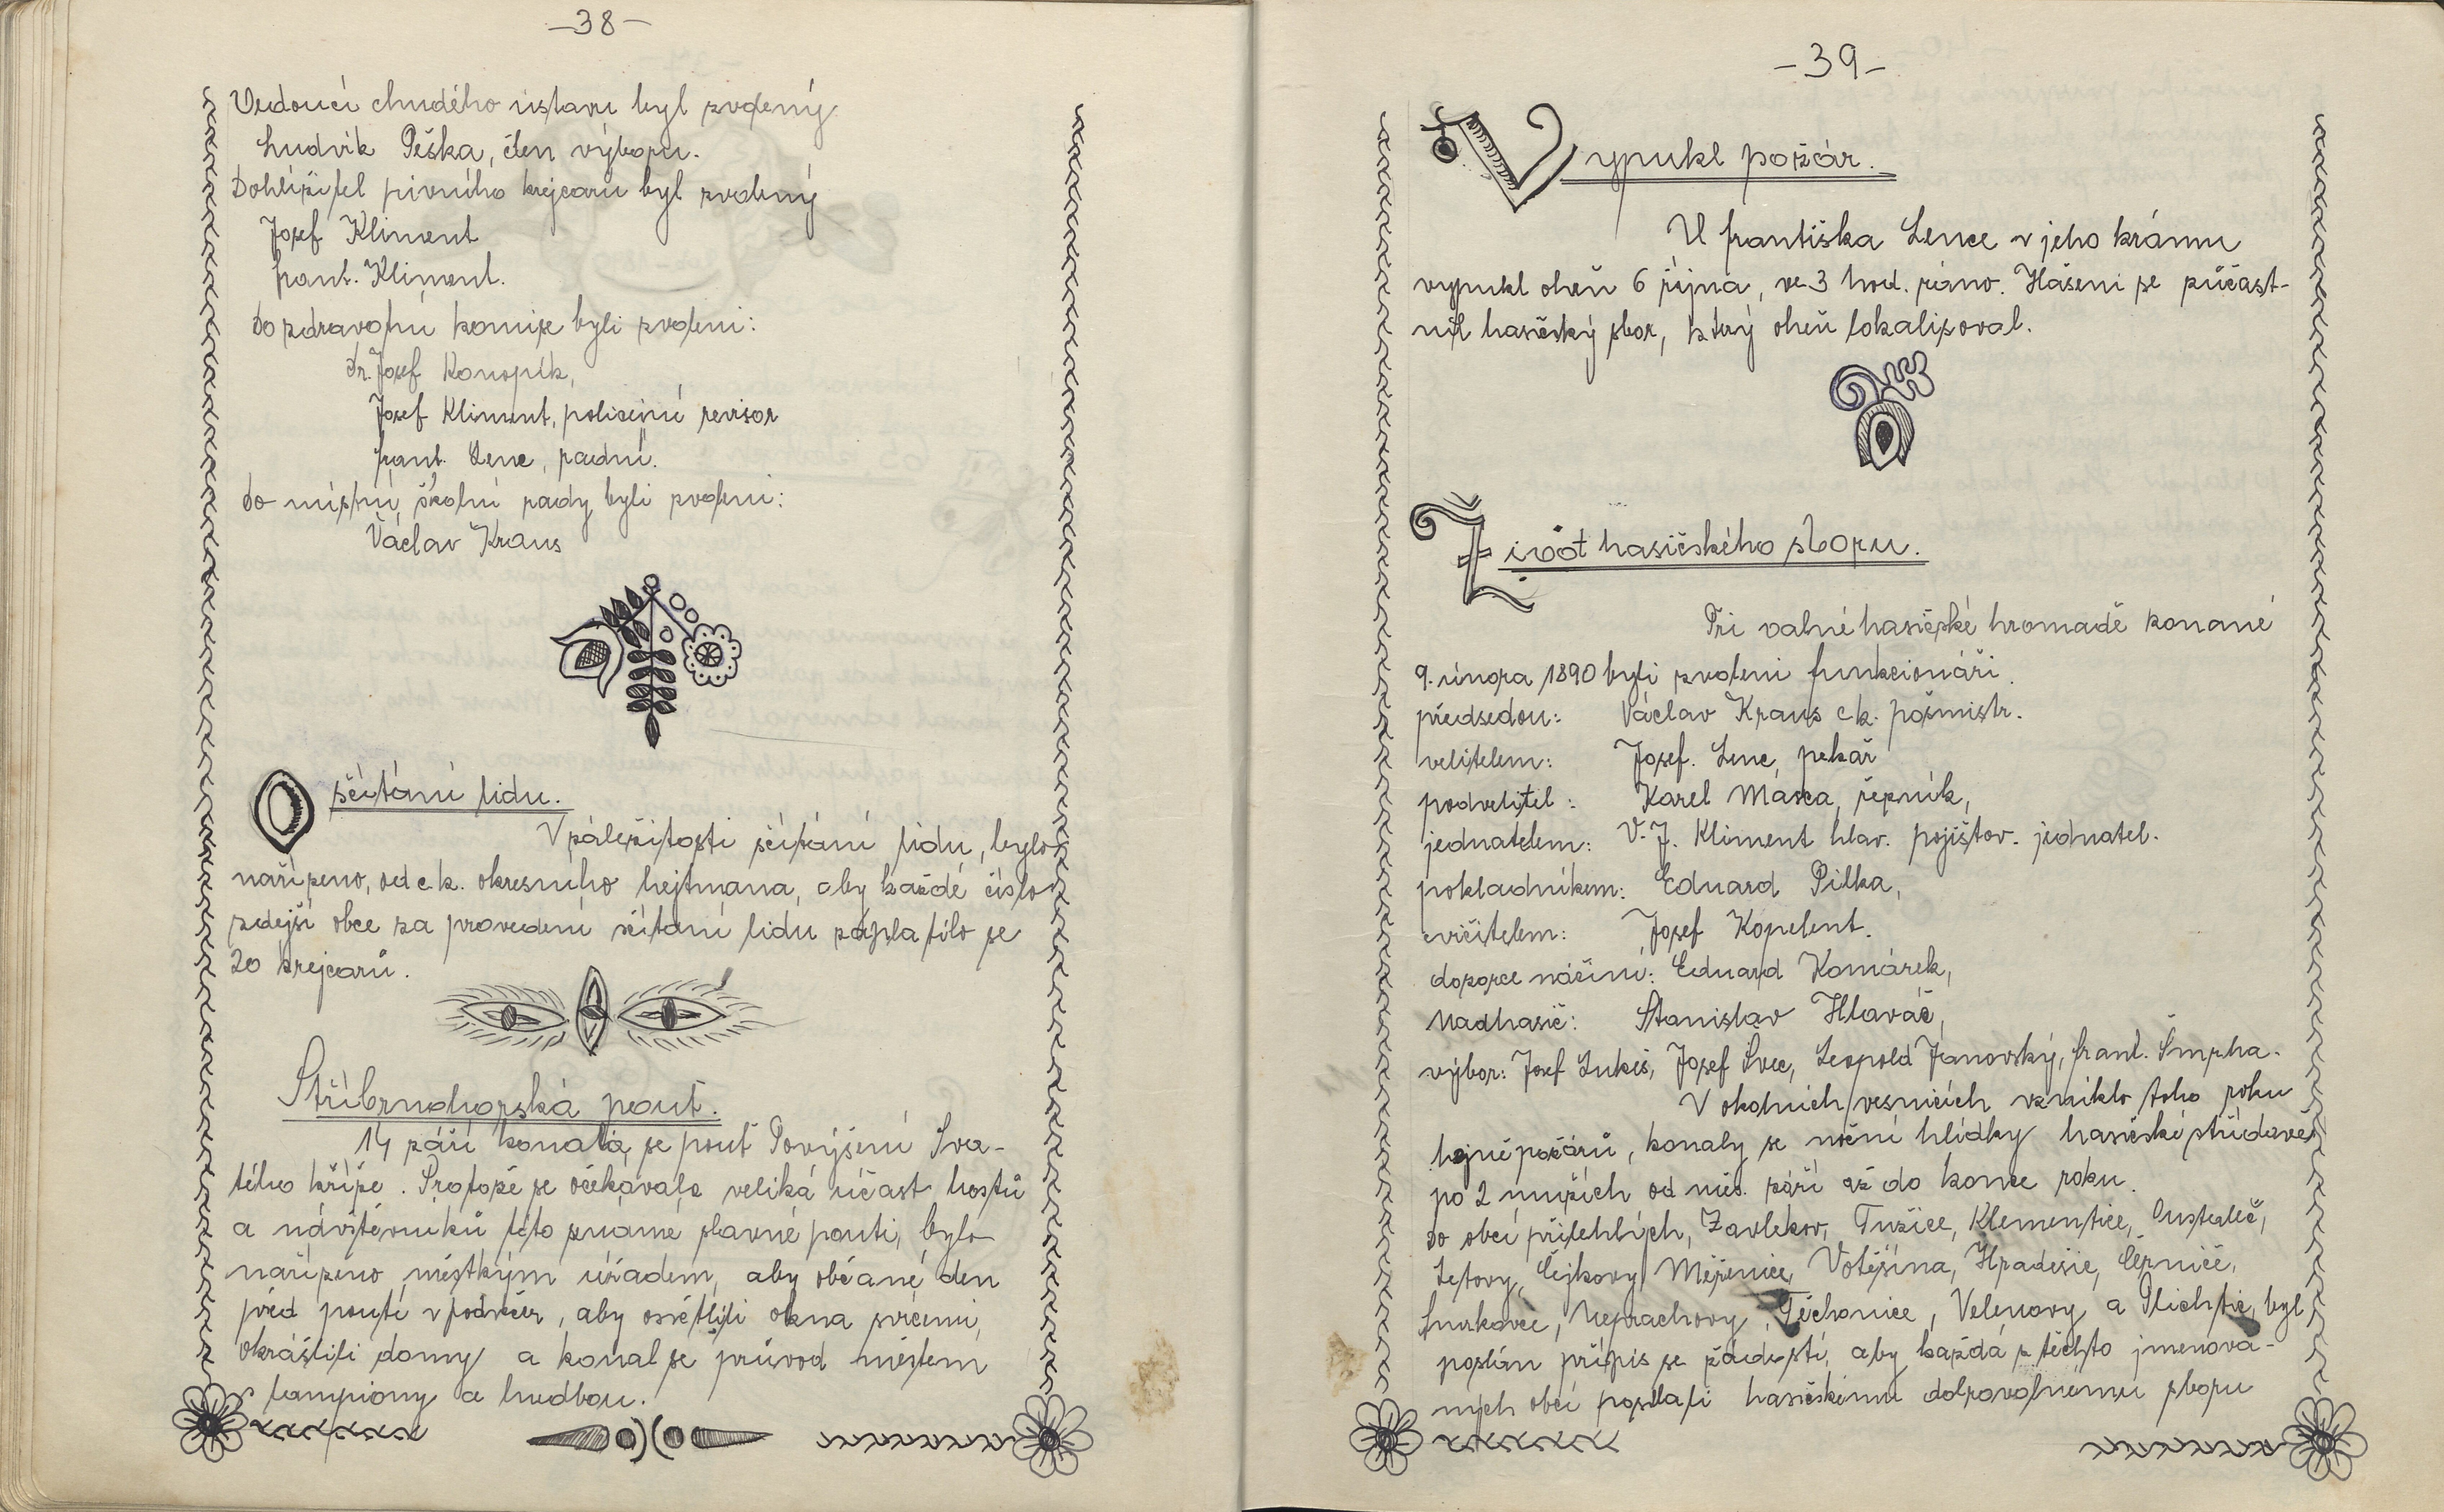 -38-
Vedoucí chudého ústavu byl zvolený
Ludvík Peška, člen výboru.
Dohlížitel pivního krejcaru byl zvolený
Josef Kliment
frant. Kliment.
Do zdravotní komise byli zvoleni:
Dr. Josef Konopík,
Josef Kliment, policejní revisor
frant. Lenc, radní.
Do místní školní rady byli zvoleni:
Václav Kraus
O sčítání lidu.
V záležitosti sčítání lidu, bylo
nařízeno, od c.k. okresního hejtmana, aby každé číslo
zdejší obce za provedení sčítání lidu zaplatilo se
20 krejcarů.
Stříbrnohorská pouť.
14 září konala se pouť Povýšení Sva-
tého kříže. Protože se očekávala veliká účast hostů
a návštěvníků této známé slavné pouti, bylo
nařízeno městkým úřadem, aby občané den
před poutí v podvečer, aby osvětlili okna svícemi,
okrášlili domy a konal se průvod městem
s lampiony a hudbou.
-39-
Vypukl požár.
U františka Lence v jeho krámu
vypukl oheň 6 října, ve 3 hod. ráno. Hašení se zúčast-
nil hasičský sbor, který oheň lokalisoval.
Život hasičského sboru.
Při valné hasičské hromadě konané
9. února 1890 byli zvoleni funkcionáři.
předsedou: Václav Kraus c k. pošmistr.
velitelem: Josef. Lenc, pekař
podvelitel: Karel Masca, řezník,
jednatelem: V. J. Kliment hlav. pojišťov. jednatel.
pokladníkem: Eduard Pilka,
cvičitelem: Josef Kopelent.
dozorce náčiní: Eduard Komárek,
Nadhasič: Stanislav Hlaváč,
výbor: Josef Lukeš, Josef Švec, Leopold Janovský, frant. Šmrha.
V okolních vesnicích vzniklo toho roku
hojně požárů, konaly se noční hlídky hasičské střídavě
po 2 mužích od měs. září až do konce roku.
Do obcí přilehlých, Zavlekov, Tužice, Klementice,
Letovy, Čejkovy, Měřenice, Votěšina, Hradešic, Čepnice,
Neprachovy, Těchonice, Velenovy a Plichtic, byl
poslán přípis se žádostí, aby každá z těchto jmenova-
ných obcí poslali hasičskému dobrovolnému sboru